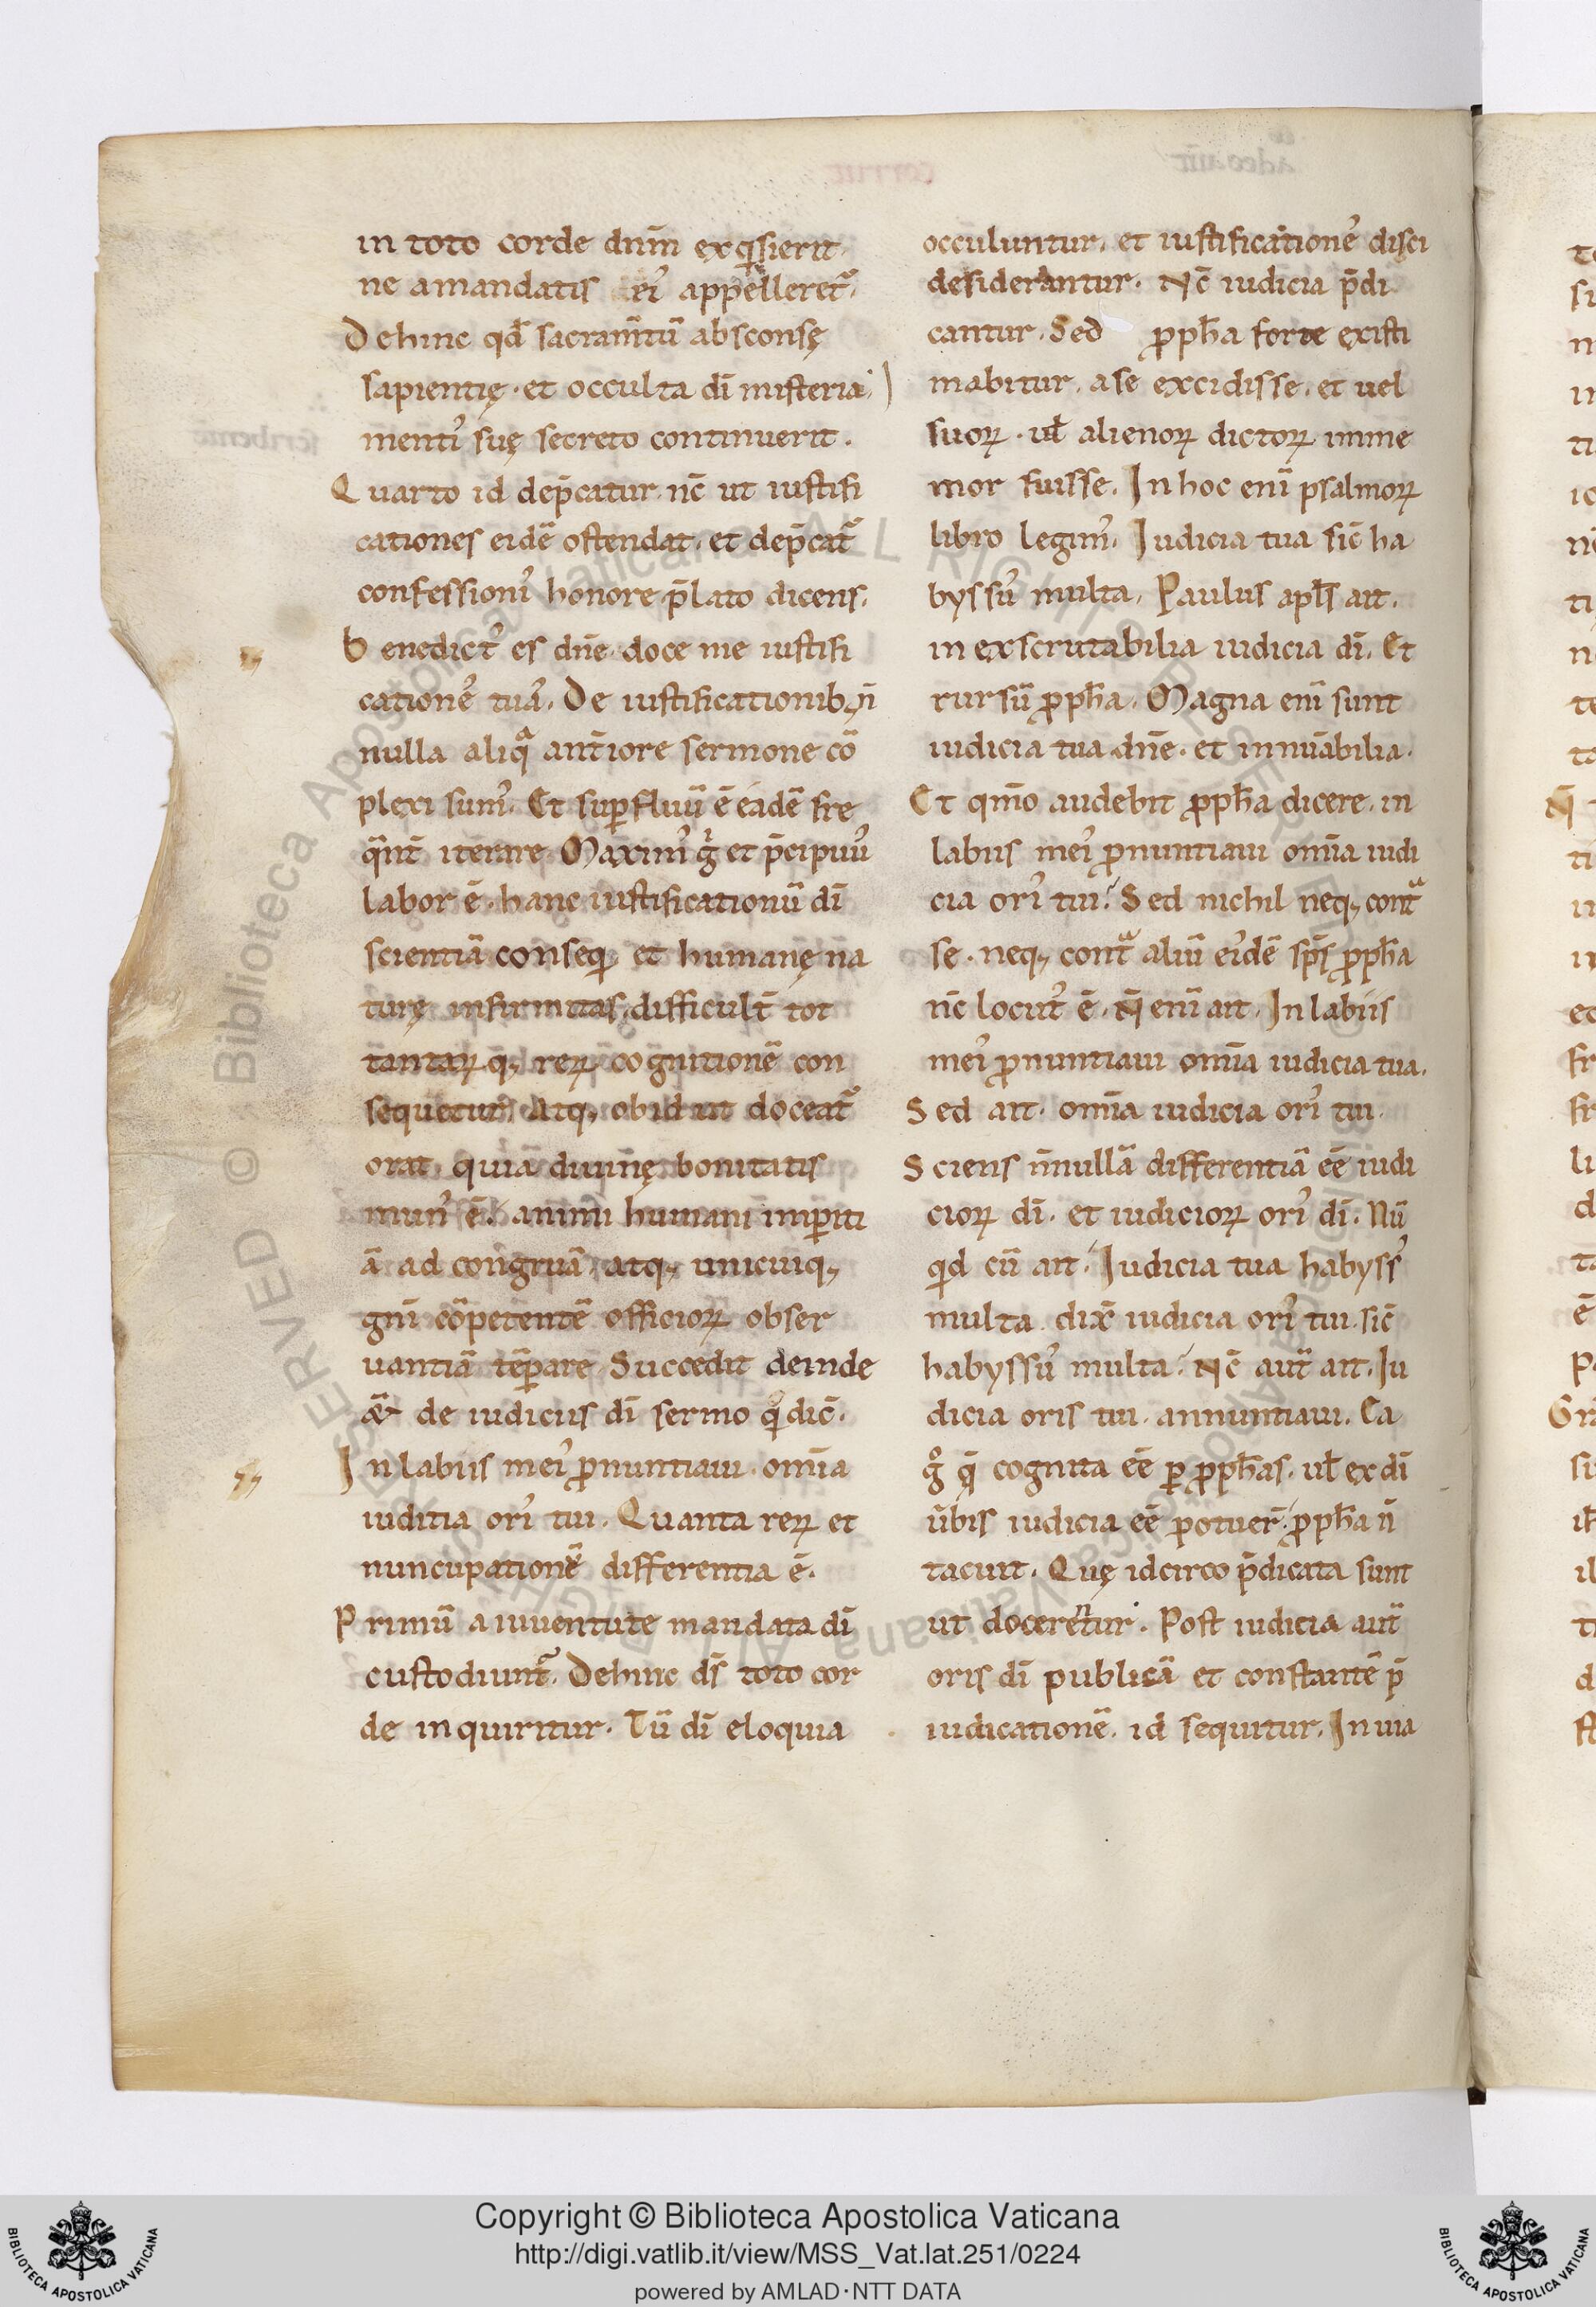 in toto corde dnm̄ exqͥsierit.
ne amandatis ei᾽ appelleret᷑.
Dehinc qđ sacram̄tū absconsę
sapientię. et occulta dī misteria
menti᾽ suę secreto continuerit.
Quarto id dep̄catur. nc̄ ut iustifi
cationes eidē ostendat. et dep̄cat᷑
confessioni᾽ honore p̄lato dicens.
Benedict᾽ es dn̄e doce me iustifi
catione᾽ tua᾽. De iustificationib; n̄
nulla aliqͣ ant̄iore sermone cō
plexi sum᾽. Et suꝑfluū ē eadē fre
qͣnt̄ iterare. Maxim᾽ gͥ et p̄cipuu᾽
labor ē. hanc iustificationū dī
scientiā conseqi et humanę na
turę infirmitas difficult̄ tot
tantaꝝq; reꝝ cognitionē con
sequetur. Atq; ob id ut doceat᷑
orat. quia diuinę bonitatis
mun᾽ ē. animi humani imꝑiti
ā ad congruā. atq; unicuiq;
gn̄i cōpetentē officioꝝ obser
uantiā tēꝑare. Succedit deinde
& de iudiciis dī sermo qͥ dic̄.
In labiis mei᾽ ꝓnuntiaui. om̄ia
iuditia ori᾽ tui. Quanta reꝝ et
nuncupationē differentia ē.
Primū a iuuentute mandata dī
custodiunt᷑. Dehinc ds̄ toto cor
de inquiritur. Tū dī eloquia
occuluntur. et iustificatione᾽ disci
desiderantur. Nc̄ iudicia p̄di
cantur. Sed ꝓph̄a forte existi
mabitur. a se excidisse. et uel
suoꝝ. ul̄ alienoꝝ dictoꝝ imme
mor fuisse. In hoc enī psalmoꝝ
libro legim᾽. Iudicia tua sic̄ ha
byssu᾽ multa. Paulus apls̄ ait.
in exscrutabilia iudicia dī. Et
rursū ꝓph̄a. Magna enī sunt
iudicia tua dn̄e. et innuābilia.
Et qm̄o audebit ꝓph̄a dicere. in
labiis mei᾽ ꝓnuntiaui om̄ia iudi
cia ori᾽ tui. Sed nichil neq; contͣ
se. neq; contͣ aliū ei᾽dē sps̄ ꝓph̄a
nc̄ locut᾽ ē. N̄ enī ait. In labiis
mei᾽ ꝓnuntiaui om̄ia iudicia tua.
Sed ait. om̄ia iudicia ori᾽ tui.
Sciens n̄nullā differentiā eē iudi
cioꝝ dī. et iudicioꝝ ori᾽ dī. Nū
qͥd cū ait. Iudicia tua habyss᾽
multa dix̄ iudicia ori᾽ tui. sic̄
habyssu᾽ multa. Nc̄ aut̄ ait. Iu
dicia oris tui. annuntiaui. Ea
gͦ q̄ cognita eē ꝑ ꝓph̄as. ul̄ ex dī
ūbis iudicia eē potuer̄. ꝓph̄a n̄
tacuit. Quę idcirco p̄dicata sunt
ut docerentur. Post iudicia aut̄
oris dī publicā et constantē p̄
iudicationē. id sequitur. In uia
Copyright © Biblioteca Apostolica Vaticana
http://digi.vatlib.it/view/MSS_Vat.lat.251/0224
powered by AMLAD·NTT DATA
BIBLIOTECA APOSTOLICA VATICANA
BIBLIOTECA APOSTOLICA VATICANA